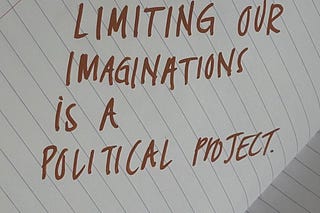 LIMITING OUR
IMAGINATIONS
IS A
POLITICAL PROJECT.